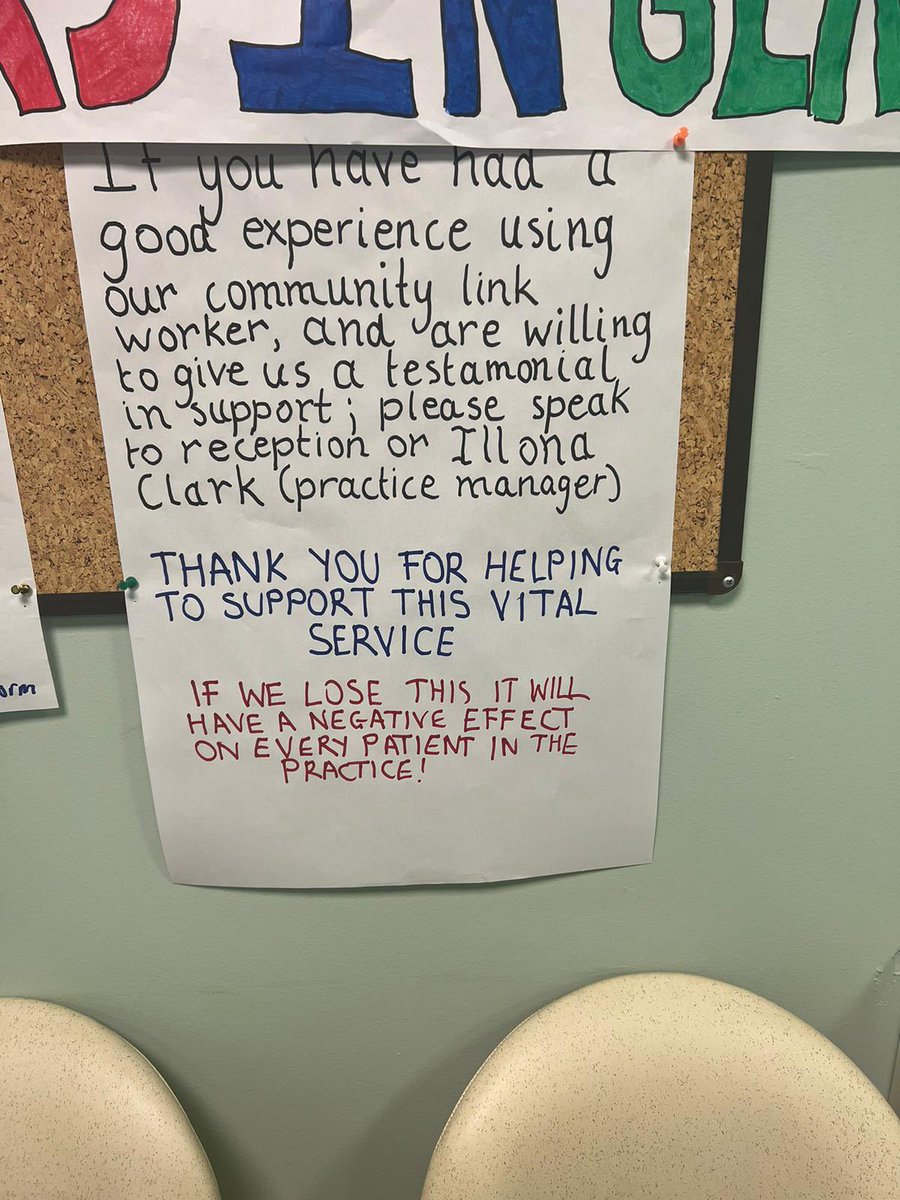 IN
If you have had a
good experience using
our community link
worker, and are willing
to give us a testamonial
in support; please speak
to reception or Illona
Clark (practice manager)
THANK YOU FOR HELPING
TO SUPPORT THIS VITAL
SERVICE
IF WE LOSE THIS IT WILL
HAVE A NEGATIVE EFFECT
ON EVERY PATIENT IN THE
PRACTICE!